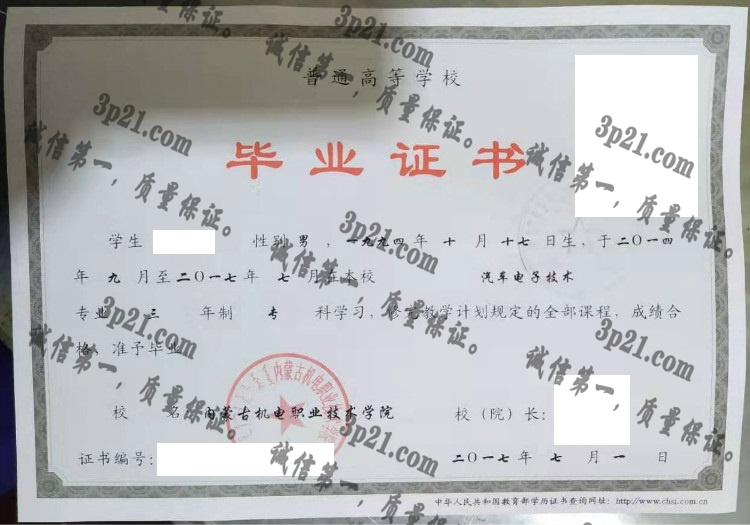 普通高等学校
毕业证书
学生 性别 男 ，一九九四 年 十 月 十七 日生，于二〇一四
年 九 月至二〇一七年 七 月在本校 汽车电子技术
专业 三 年制 专 科学习，修完教学计划规定的全部课程，成绩合
格，准予毕业
校 名 内蒙古机电职业技术学院 校（院）长：
证书编号： 二〇一七年 七 月 一 日
中华人民共和国教育部学历证书查询网址：http://www.chsi.com.cn
内蒙古机电职业技术学院
3p21.com
诚信第一，质量保证。
3p21.com
诚信第一，质量保证。
3p21.com
诚信第一，质量保证。
3p21.com
诚信第一，质量保证。
3p21.com
诚信第一，质量保证。
3p21.com
诚信第一，质量保证。
3p21.com
诚信第一，质量保证。
3p21.com
诚信第一，质量保证。
3p21.com
诚信第一，质量保证。